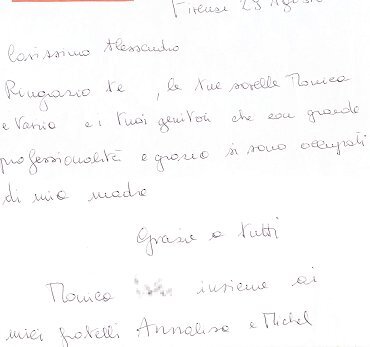 Firenze 29 Agosto
Carissimo Alessandro
Ringrazio te, le tue sorelle Monica
e Vania e i tuoi genitori che con grande
professionalità e grazia si sono occupati
di mia madre
Grazie a tutti
Monica insieme ai
miei fratelli Annalisa e Michel